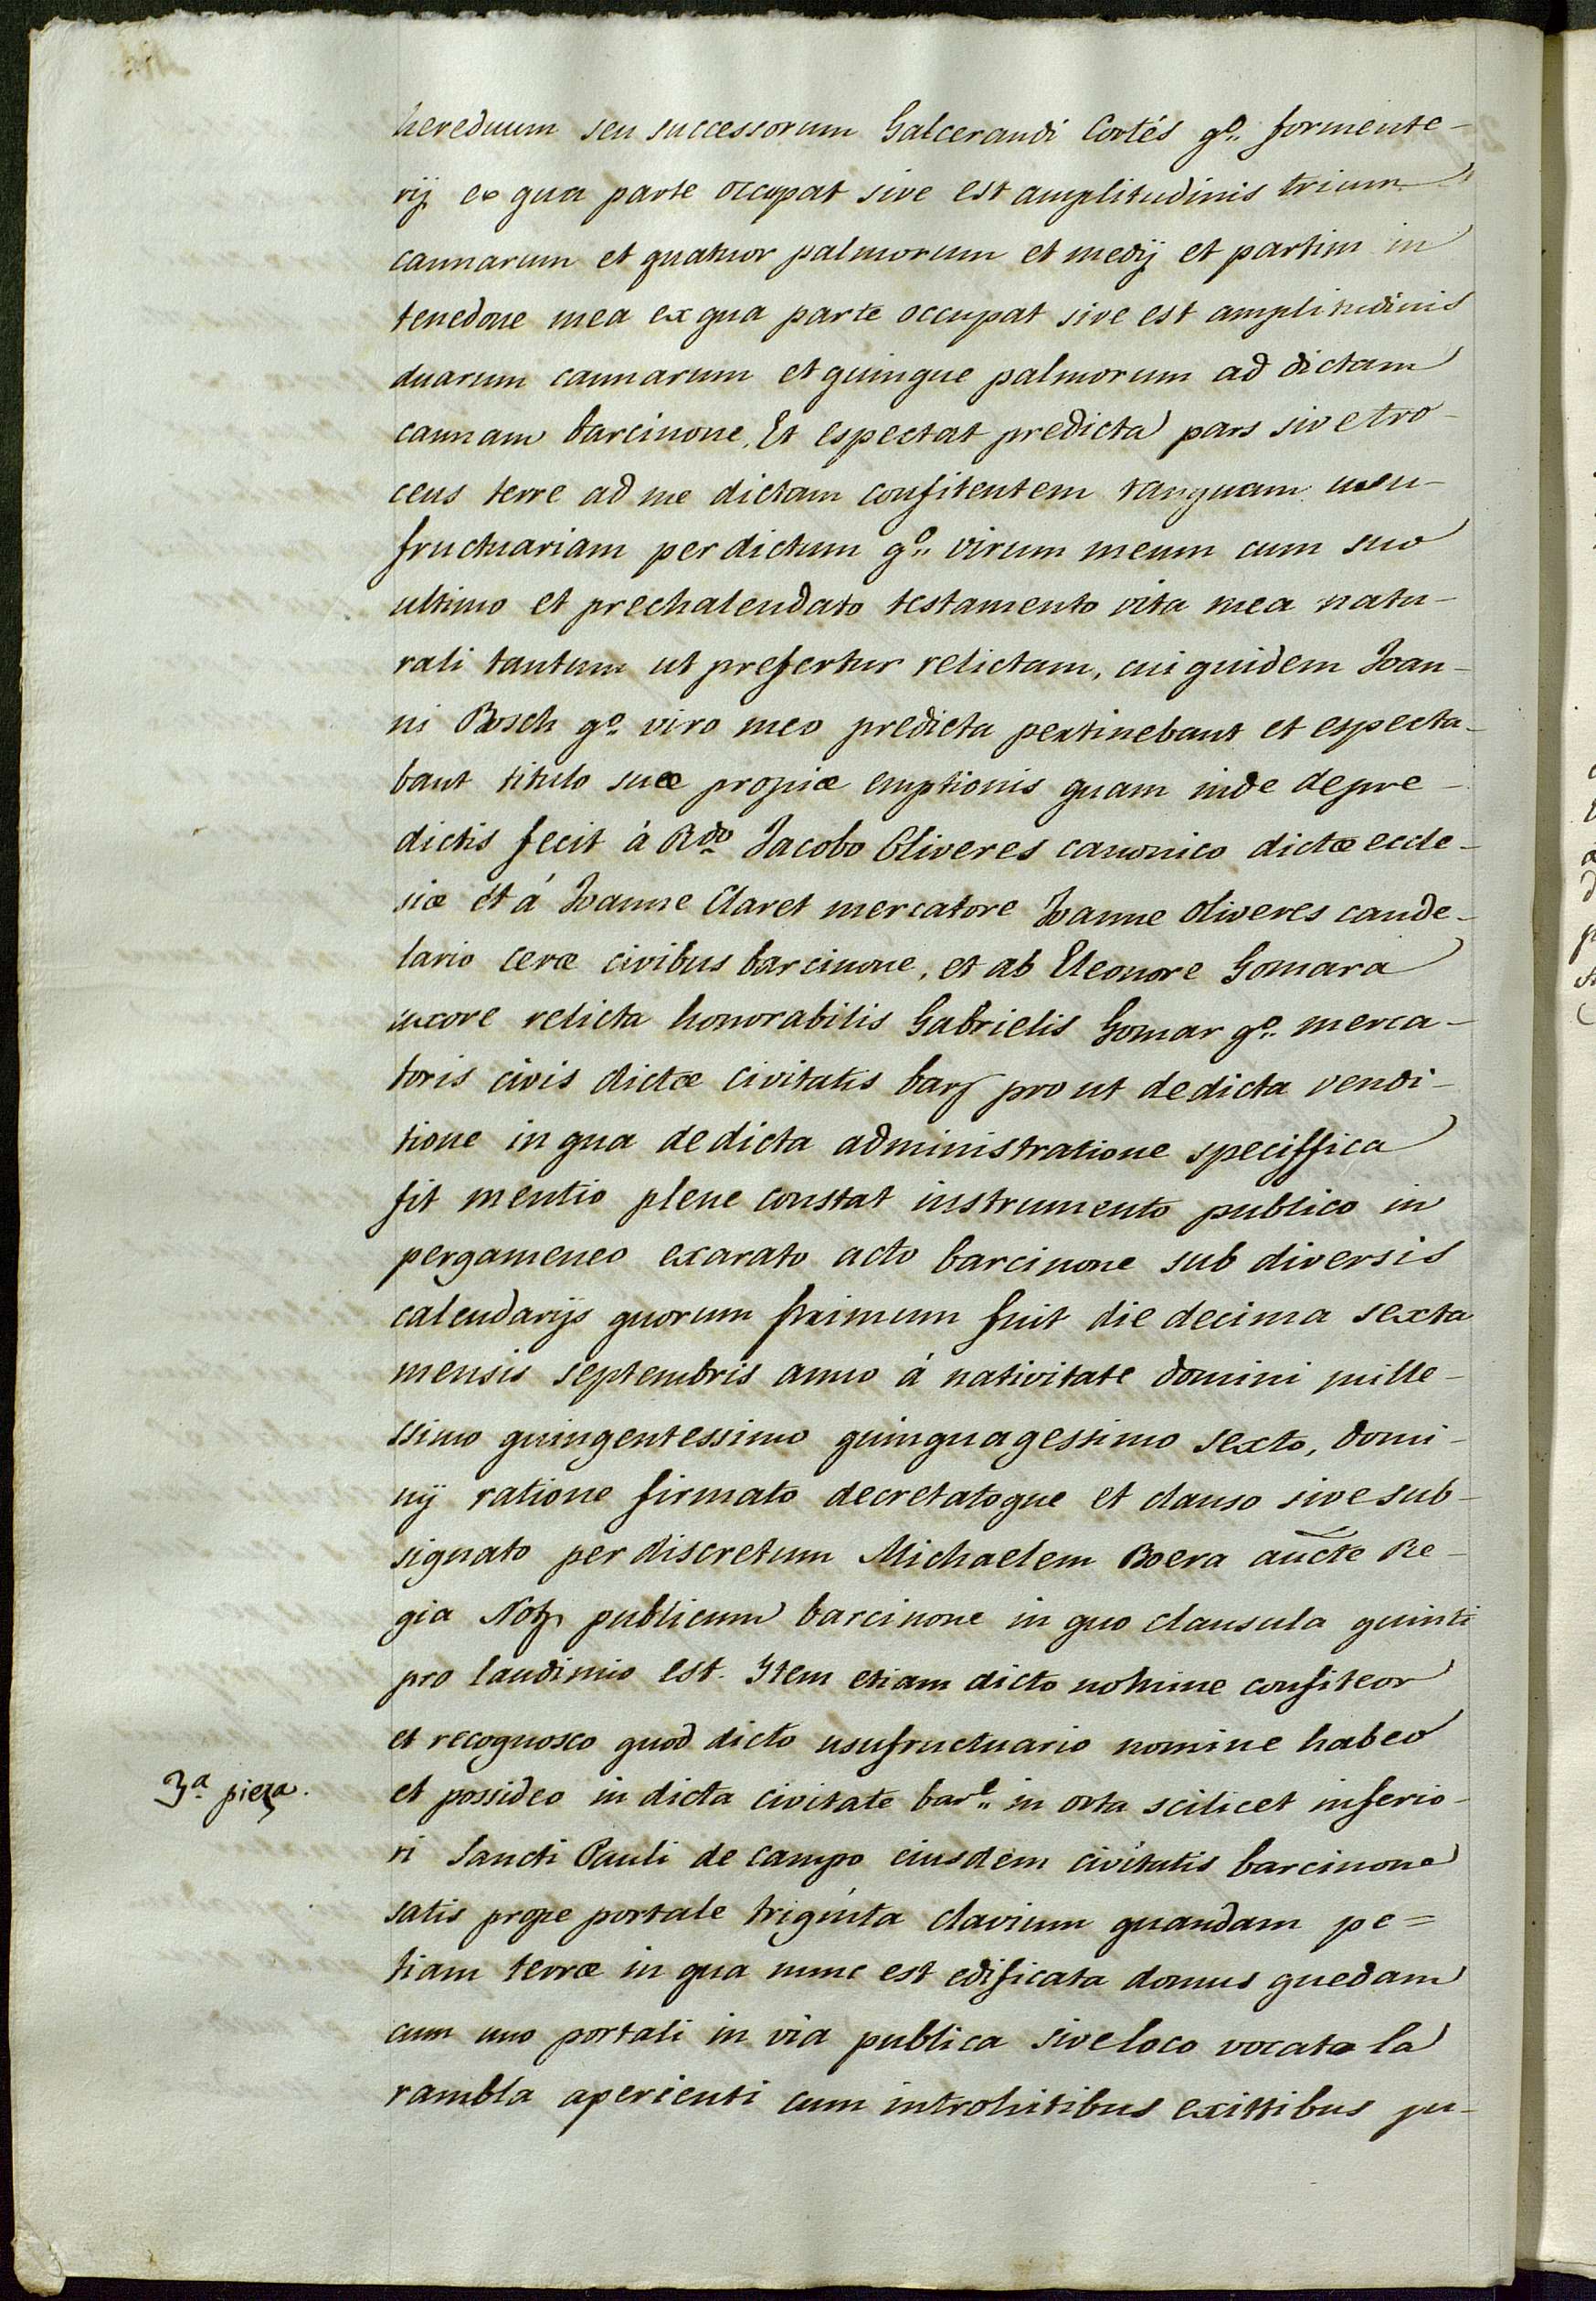 hereduum seu successorum Galcerandi Cortés gº. formente-
rij ex qua parte occupat sive est amplitudinis trium
cannarum et quatuor palmorum et medij et partim in
tenedone mea ex qua parte occupat sive est amplitudinis
duarum cannarum et quinque palmorum ad dictam
cannam barcinone. Et espectat predicta pars sive tro-
ceus terre ad me dictam confitentem tanquam usu-
fructuariam per dictum gº. virum meum cum suo
ultimo et prechalendato testamento vita mea natu-
rali tantum ut prefertur relictam, cui quidem Joan-
ni Bosch gº viro meo predicta pertinebant et especta-
bant titulo suæ propiæ emptionis quam inde de pre-
dictis fecit á Rdo Jacobo Oliveres canonico dictæ eccle-
siæ et á Joanne Claret mercatore Joanne Oliveres cande-
lario ceræ civibus barcinone, et ab Eleonore Gomara
uxore relicta honorabilis Gabrielis Gomar gº. merca-
toris civis dictæ civitatis bar prout de dicta vendi-
tione in qua de dicta administratione speciffica
fit mentio plene constat instrumento publico in
pergameneo exarato acto barcinone sub diversis
calendarijs quorum primum fuit die decima sexta
mensis septembris anno á nativitate domini mille-
ssimo quingentessimo quinquagessimo sexto, domi-
nij ratione firmato decretatoque et clauso sive sub-
signato per discretum Michaelem Boera aucte Re-
gia Not publicum barcinone in quo clausula quinti
pro laudimio est. Item etiam dicto nomine confiteor
et recognosco quod dicto usufructuario nomine habeo
3ª pieza.
et possideo in dicta civitate bare. in orta scilicet inferio-
ri Sancti Pauli de campo eiusdem civitatis barcinone
satis prope portale triginta clavium quandam pe=
tiam terræ in qua nunc est edificata domus quedam
cum uno portali in via publica sive loco vocato la
rambla aperienti cum introhitibus exittibus pu-